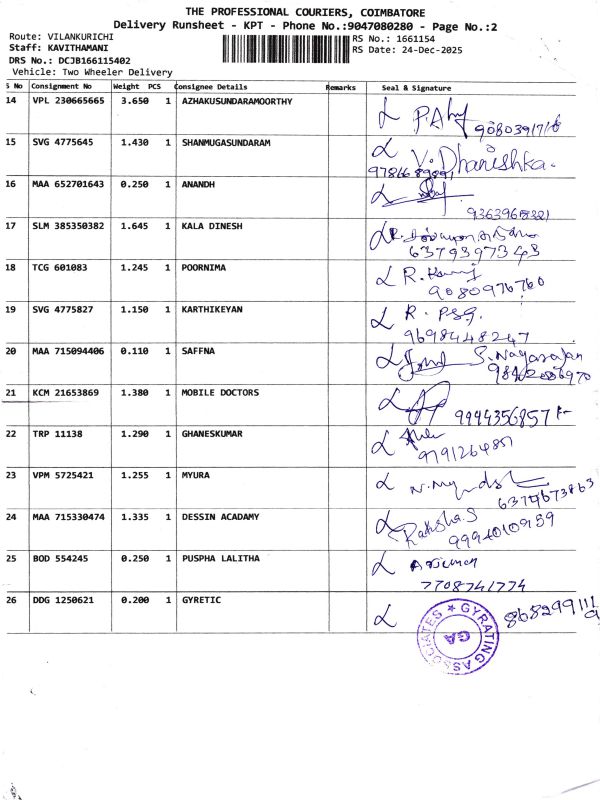 THE PROFESSIONAL COURIERS, COIMBATORE
Delivery Runsheet - KPT - Phone No.:9047080280 - Page No.:2
Route: VILANKURICHI
RS No.: 1661154
Staff: KAVITHAMANI
RS Date: 24-Dec-2025
DRS No.: DCJB166115402
Vehicle: Two Wheeler Delivery
S No Consignment No Weight PCS Consignee Details Remarks Seal & Signature
14 VPL 230665665 3.650 1 AZHAKUSUNDARAMOORTHY
15 SVG 4775645 1.430 1 SHANMUGASUNDARAM V. Dhanishka.
16 MAA 652701643 0.250 1 ANANDH
17 SLM 385350382 1.645 1 KALA DINESH
6379397343
18 TCG 601083 1.245 1 POORNIMA
9080976760
19 SVG 4775827 1.150 1 KARTHIKEYAN R. PSG.
9698448247
20 MAA 715094406 0.110 1 SAFFNA S. Nagarajan
21 KCM 21653869 1.380 1 MOBILE DOCTORS
9994356857
22 TRP 11138 1.290 1 GHANESKUMAR
23 VPM 5725421 1.255 1 MYURA
24 MAA 715330474 1.335 1 DESSIN ACADAMY Raksha.S
9994010959
25 BOD 554245 0.250 1 PUSPHA LALITHA
7708741774
26 DDG 1250621 0.200 1 GYRETIC
GYRATING ASSOCIATES
GA